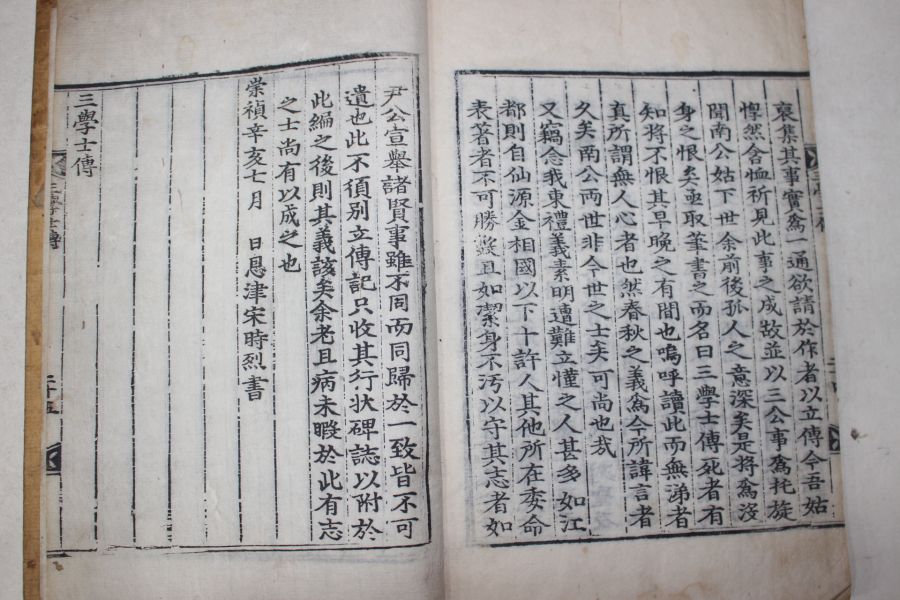 裒集其事實爲一通欲請於作者以立傳今吾姑
悍然含恤祈見此事之成故並以三公事爲托旋
聞南公姑下世余前後孤人之意深矣是將爲沒
身之恨矣亟取筆書之而名曰三學士傳死者有
知將不恨其早晚之有間也嗚呼讀此而無涕者
眞所謂無人心者也然春秋之義爲今所諱言者
久矣南公兩世非今世之士矣可尚也哉
又竊念我東禮義素明遭難立慬之人甚多如江
都則自仙源金相國以下十許人其他所在委命
表著者不可勝數且如潔身不汚以守其志者如
尹公宣擧諸賢事雖不同而同歸於一致皆不可
遺也此不須別立傳記只收其行狀碑誌以附於
此編之後則其義該矣余老且病未暇於此有志
之士尚有以成之也
崇禎辛亥七月 日恩津宋時烈書
三學士傳
三學士傳
二十五